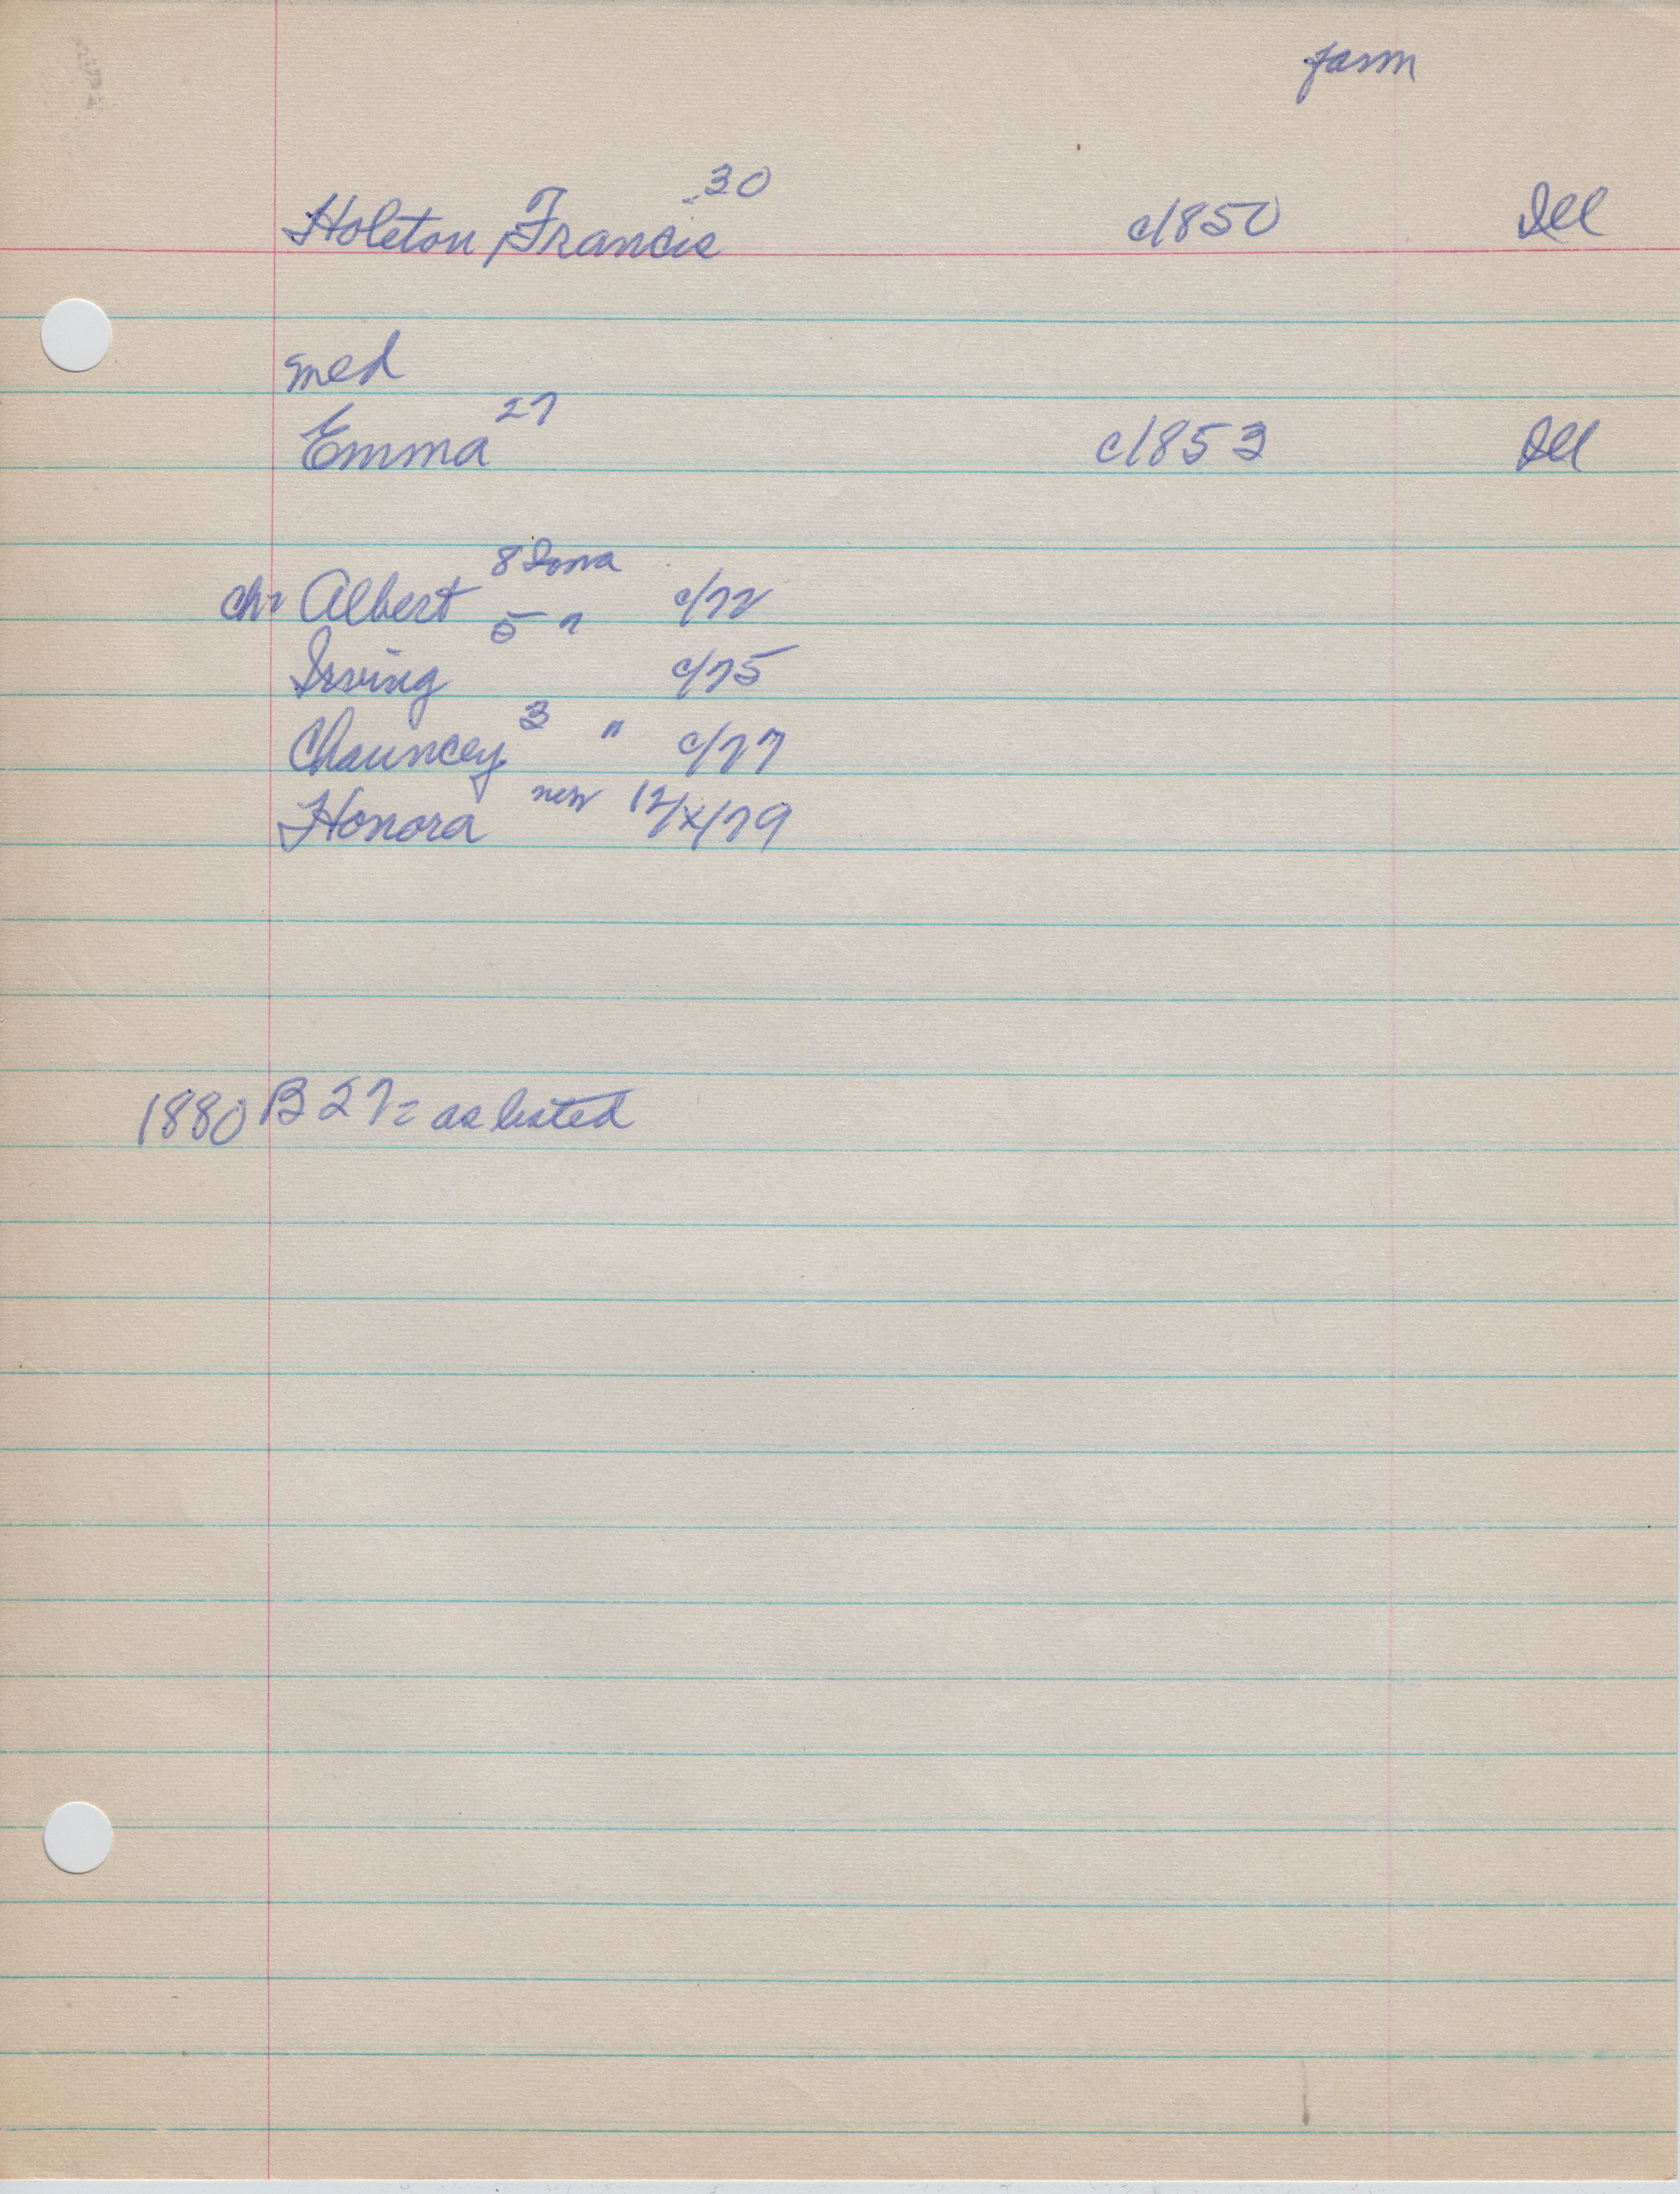 farm
Holeton, Francis 30 c/1850 Ill
med
Emma 27 c/1853 Ill
ch: Albert 8 Iowa c/72
Irving 5 " c/75
Chauncey 3 " c/77
Honora 12/x/79
1880 B 27 = as listed